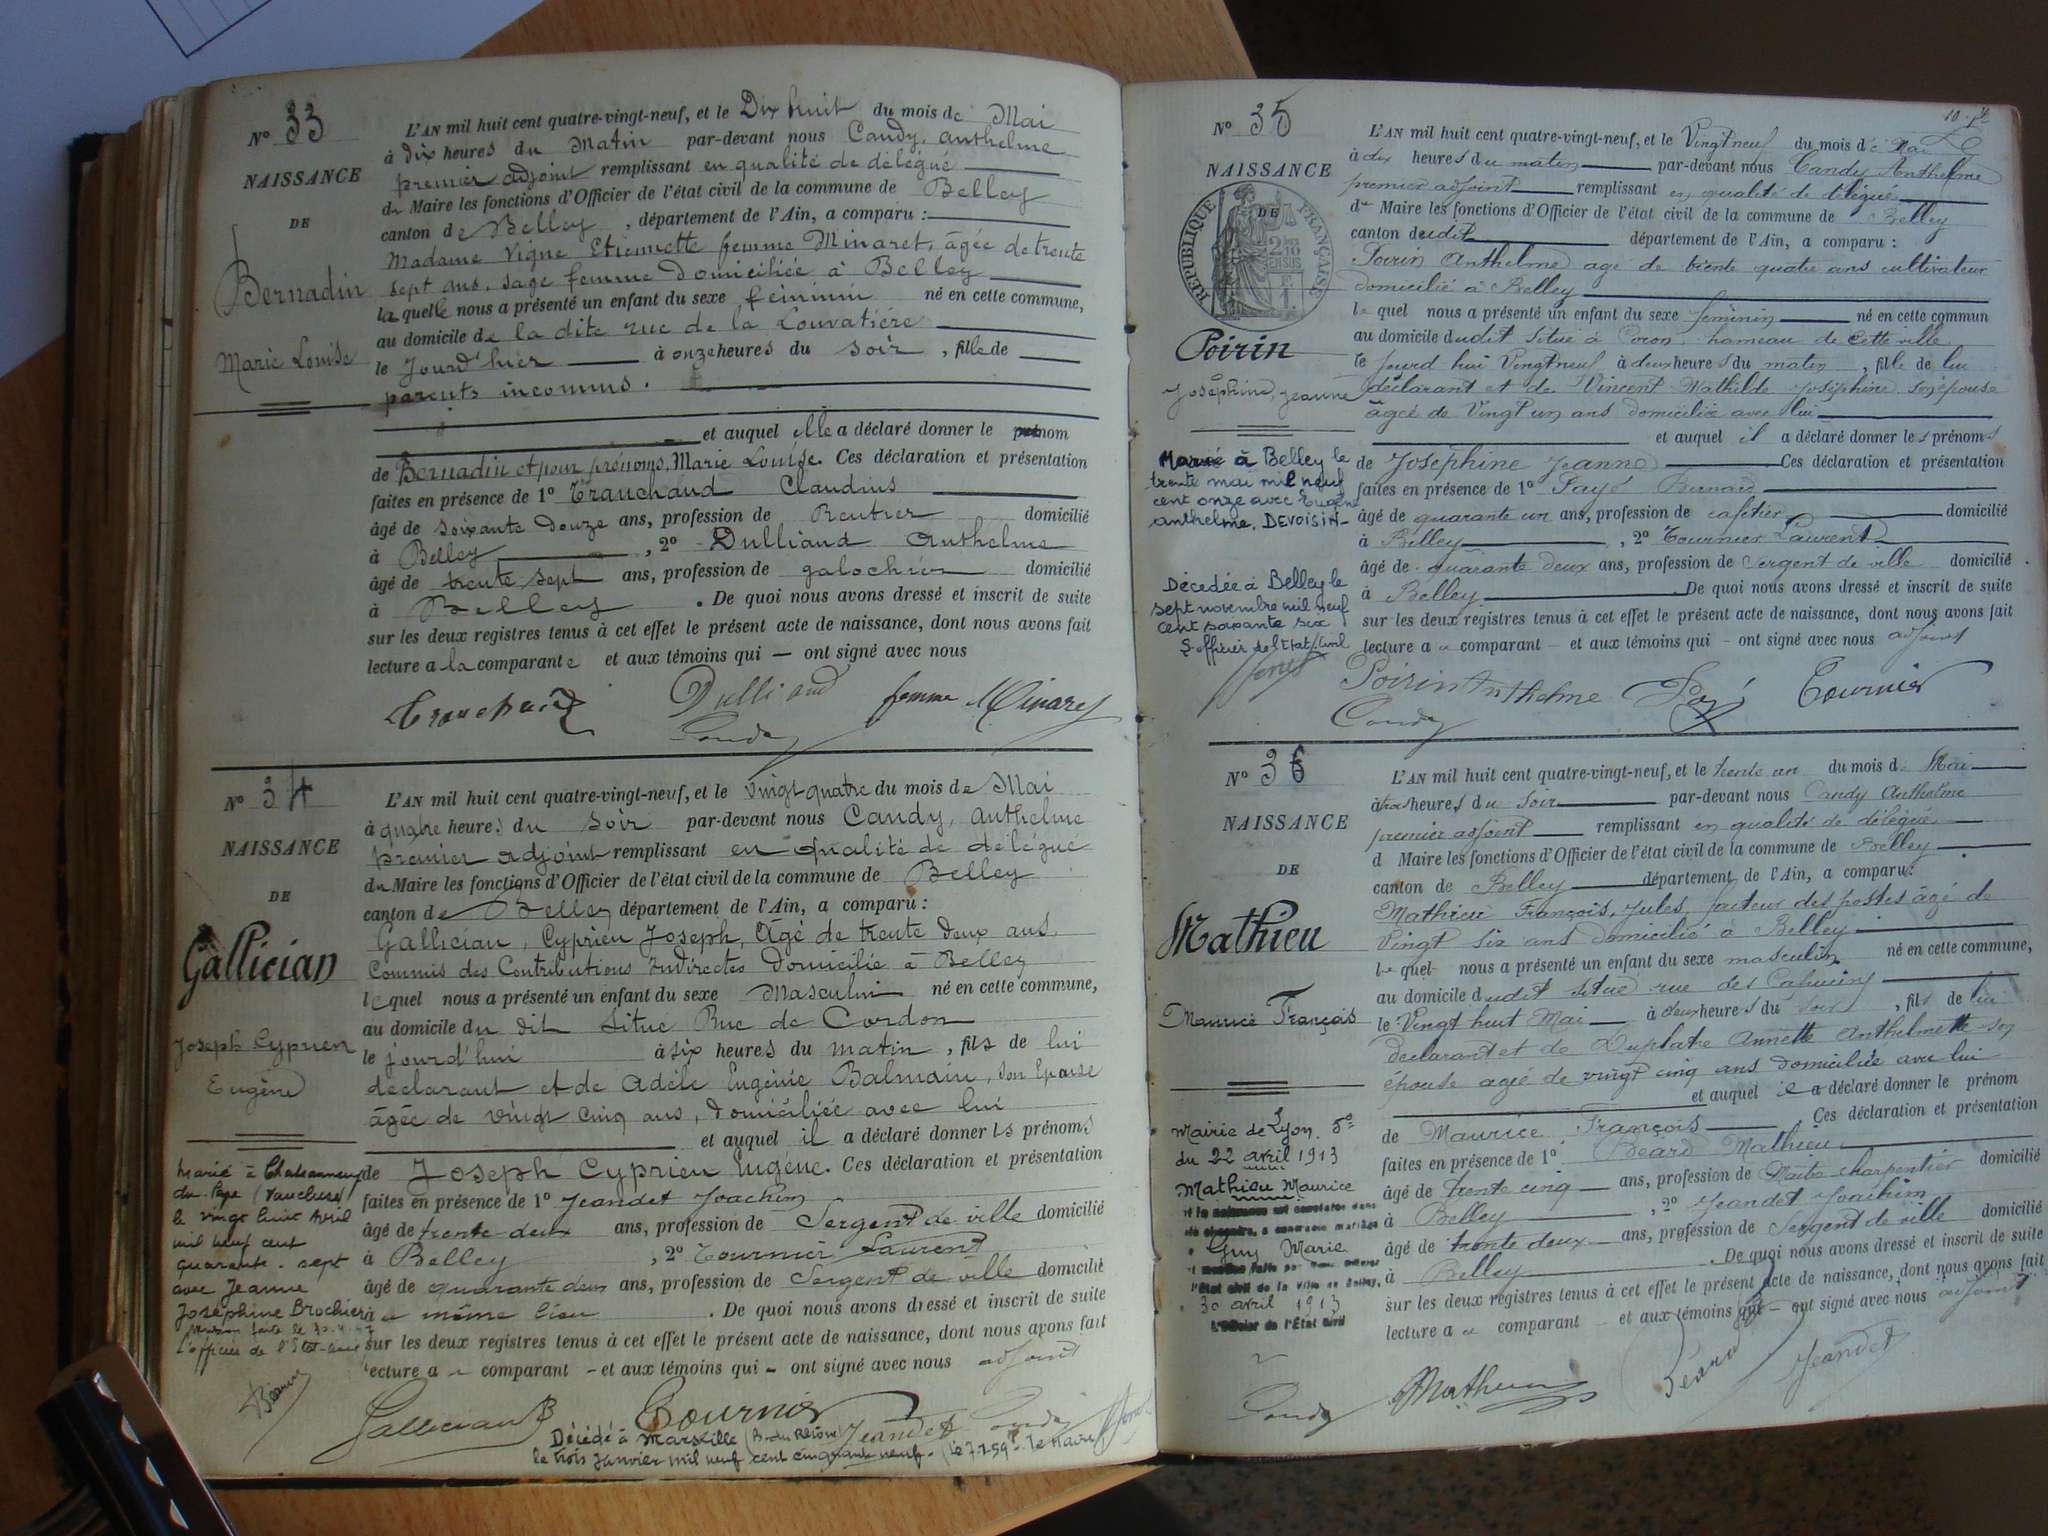 N° 33
NAISSANCE
DE
Bernadin
Marie Louise
L'AN mil huit cent quatre-vingt-neuf, et le Dix huit du mois de Mai
à dix heures du Matin par-devant nous Candy, Anthelme
premier adjoint remplissant en qualité de délégué
du Maire les fonctions d'Officier de l'état civil de la commune de Belley
canton de Belley, département de l'Ain, a comparu :
Madame Vigne Etiennette femme Minaret, âgée de trente
sept ans, sage femme domiciliée à Belley
la quelle nous a présenté un enfant du sexe féminin né en cette commune,
au domicile de la dite rue de la Louvatière
le Jourd'hier à onze heures du soir, fille de
parents inconnus.
et auquel elle a déclaré donner le nom
de Bernadin et pour prénoms, Marie Louise. Ces déclaration et présentation
faites en présence de 1° Trauchand Claudius
âgé de soixante douze ans, profession de Rentier domicilié
à Belley, 2° Dulliand Anthelme
âgé de trente sept ans, profession de galochier domicilié
à Belley. De quoi nous avons dressé et inscrit de suite
sur les deux registres tenus à cet effet le présent acte de naissance, dont nous avons fait
lecture a la comparante et aux témoins qui — ont signé avec nous
Trauchand Dulliand femme Minaret
Candy
N° 34
NAISSANCE
DE
Gallician
Joseph Cyprien
Eugène
L'AN mil huit cent quatre-vingt-neuf, et le vingt quatre du mois de Mai
à quatre heures du soir par-devant nous Candy, Anthelme
premier adjoint remplissant en qualité de délégué
du Maire les fonctions d'Officier de l'état civil de la commune de Belley
canton de Belley département de l'Ain, a comparu :
Gallician, Cyprien Joseph, Agé de trente deux ans
Commis des Contributions Indirectes domicilié à Belley
le quel nous a présenté un enfant du sexe Masculin né en cette commune,
au domicile du dit situé Rue de Cordon
le jourd'hui à six heures du matin, fils de lui
déclarant et de Adèle Eugénie Balmain, son Epouse
âgée de vingt cinq ans, domiciliée avec lui
et auquel il a déclaré donner les prénoms
de Joseph Cyprien Eugène. Ces déclaration et présentation
faites en présence de 1° Jeandet Joachim
âgé de trente-deux ans, profession de Sergent de ville domicilié
à Belley, 2° Tournier Laurent
âgé de quarante deux ans, profession de Sergent de ville domicilié
même lieu. De quoi nous avons dressé et inscrit de suite
sur les deux registres tenus à cet effet le présent acte de naissance, dont nous avons fait
lecture a u comparant — et aux témoins qui — ont signé avec nous adjoint
Marié à Chateauneuf
du Pape (Vaucluse)
le vingt huit Avril
mil neuf cent
quarante-sept
avec Jeanne
Joséphine Brochier
L'officier de l'Etat-civil
Gallician Tournier Jeandet Candy
Décédé à Marseille (B. du Rhône)
le trois Janvier mil neuf cent cinquante neuf. (le 7.1.59 - le Maire)
10
N° 35
NAISSANCE
DE
RÉPUBLIQUE FRANÇAISE
Poirin
Joséphine, Jeanne
L'AN mil huit cent quatre-vingt-neuf, et le Vingt neuf du mois de Mai
à dix heures du matin par-devant nous Candy Anthelme
premier adjoint remplissant en qualité de délégué
du Maire les fonctions d'Officier de l'état civil de la commune de Belley
canton dudit département de l'Ain, a comparu :
Poirin Anthelme agé de trente quatre ans cultivateur
domicilié à Belley
le quel nous a présenté un enfant du sexe féminin né en cette commun
au domicile dudit situé à Coron hameau de cette ville
le jourd hui Vingt neuf à deux heures du matin, fille de lui
déclarant et de Vincent Mathilde Joséphine son épouse
âgée de Vingt un ans domiciliée avec lui
et auquel il a déclaré donner les prénoms
de Joséphine Jeanne Ces déclaration et présentation
faites en présence de 1° Payé Bernard
âgé de quarante un ans, profession de cafetier domicilié
à Belley, 2° Tournier Laurent
âgé de quarante deux ans, profession de Sergent de ville domicilié
à Belley De quoi nous avons dressé et inscrit de suite
sur les deux registres tenus à cet effet le présent acte de naissance, dont nous avons fait
lecture a u comparant — et aux témoins qui — ont signé avec nous adjoint
Marié à Belley le
trente mai mil neuf
cent onze avec Eugène
anthelme, DEVOISIN-
Décédée à Belley le
sept novembre mil neuf
cent soixante six
L'officier de l'Etat Civil
Poirin Anthelme Payé Tournier
Candy
N° 36
NAISSANCE
DE
Mathieu
Maurice François
L'AN mil huit cent quatre-vingt-neuf, et le trente un du mois d Mai
à trois heures du soir par-devant nous Candy Anthelme
premier adjoint remplissant en qualité de délégué
d Maire les fonctions d'Officier de l'état civil de la commune de Belley
canton de Belley département de l'Ain, a comparu :
Mathieu François, Jules, facteur des postes âgé de
Vingt six ans domicilié à Belley
le quel nous a présenté un enfant du sexe masculin né en cette commune,
au domicile dudit situé rue des Capucins
le Vingt huit Mai à deux heures du soir, fils de lui
déclarant et de Duplatre Annette Anthelmette son
épouse agé de vingt cinq ans domiciliée avec lui
et auquel il a déclaré donner le prénom
de Maurice François Ces déclaration et présentation
faites en présence de 1° Béard Mathieu
âgé de trente cinq ans, profession de Maître charpentier domicilié
à Belley, 2° Jeandet Joachim
âgé de trente deux ans, profession de Sergent de ville domicilié
à Belley. De quoi nous avons dressé et inscrit de suite
sur les deux registres tenus à cet effet le présent acte de naissance, dont nous avons fait
lecture a u comparant — et aux témoins qui — ont signé avec nous adjoint
Mairie de Lyon. 5°
du 22 avril 1913
Mathieu Maurice
Guy Marie
l'État civil de la Ville de Belley,
30 avril 1913
L'Officier de l'État Civil
Candy Mathieu Béard Jeandet